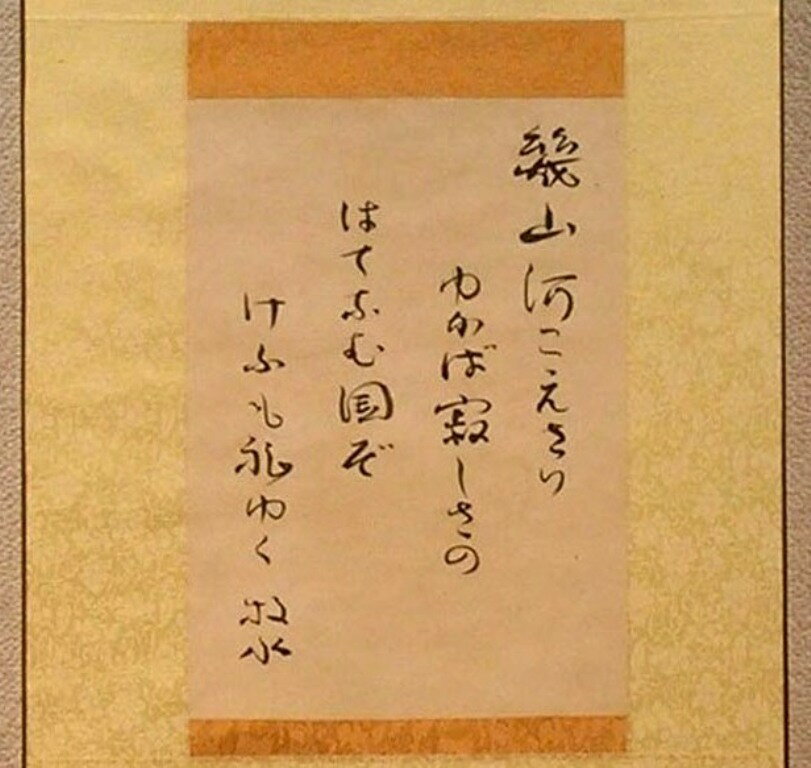 幾山河こえさり
ゆかば寂しさの
はてなむ国ぞ
けふも旅ゆく 牧水